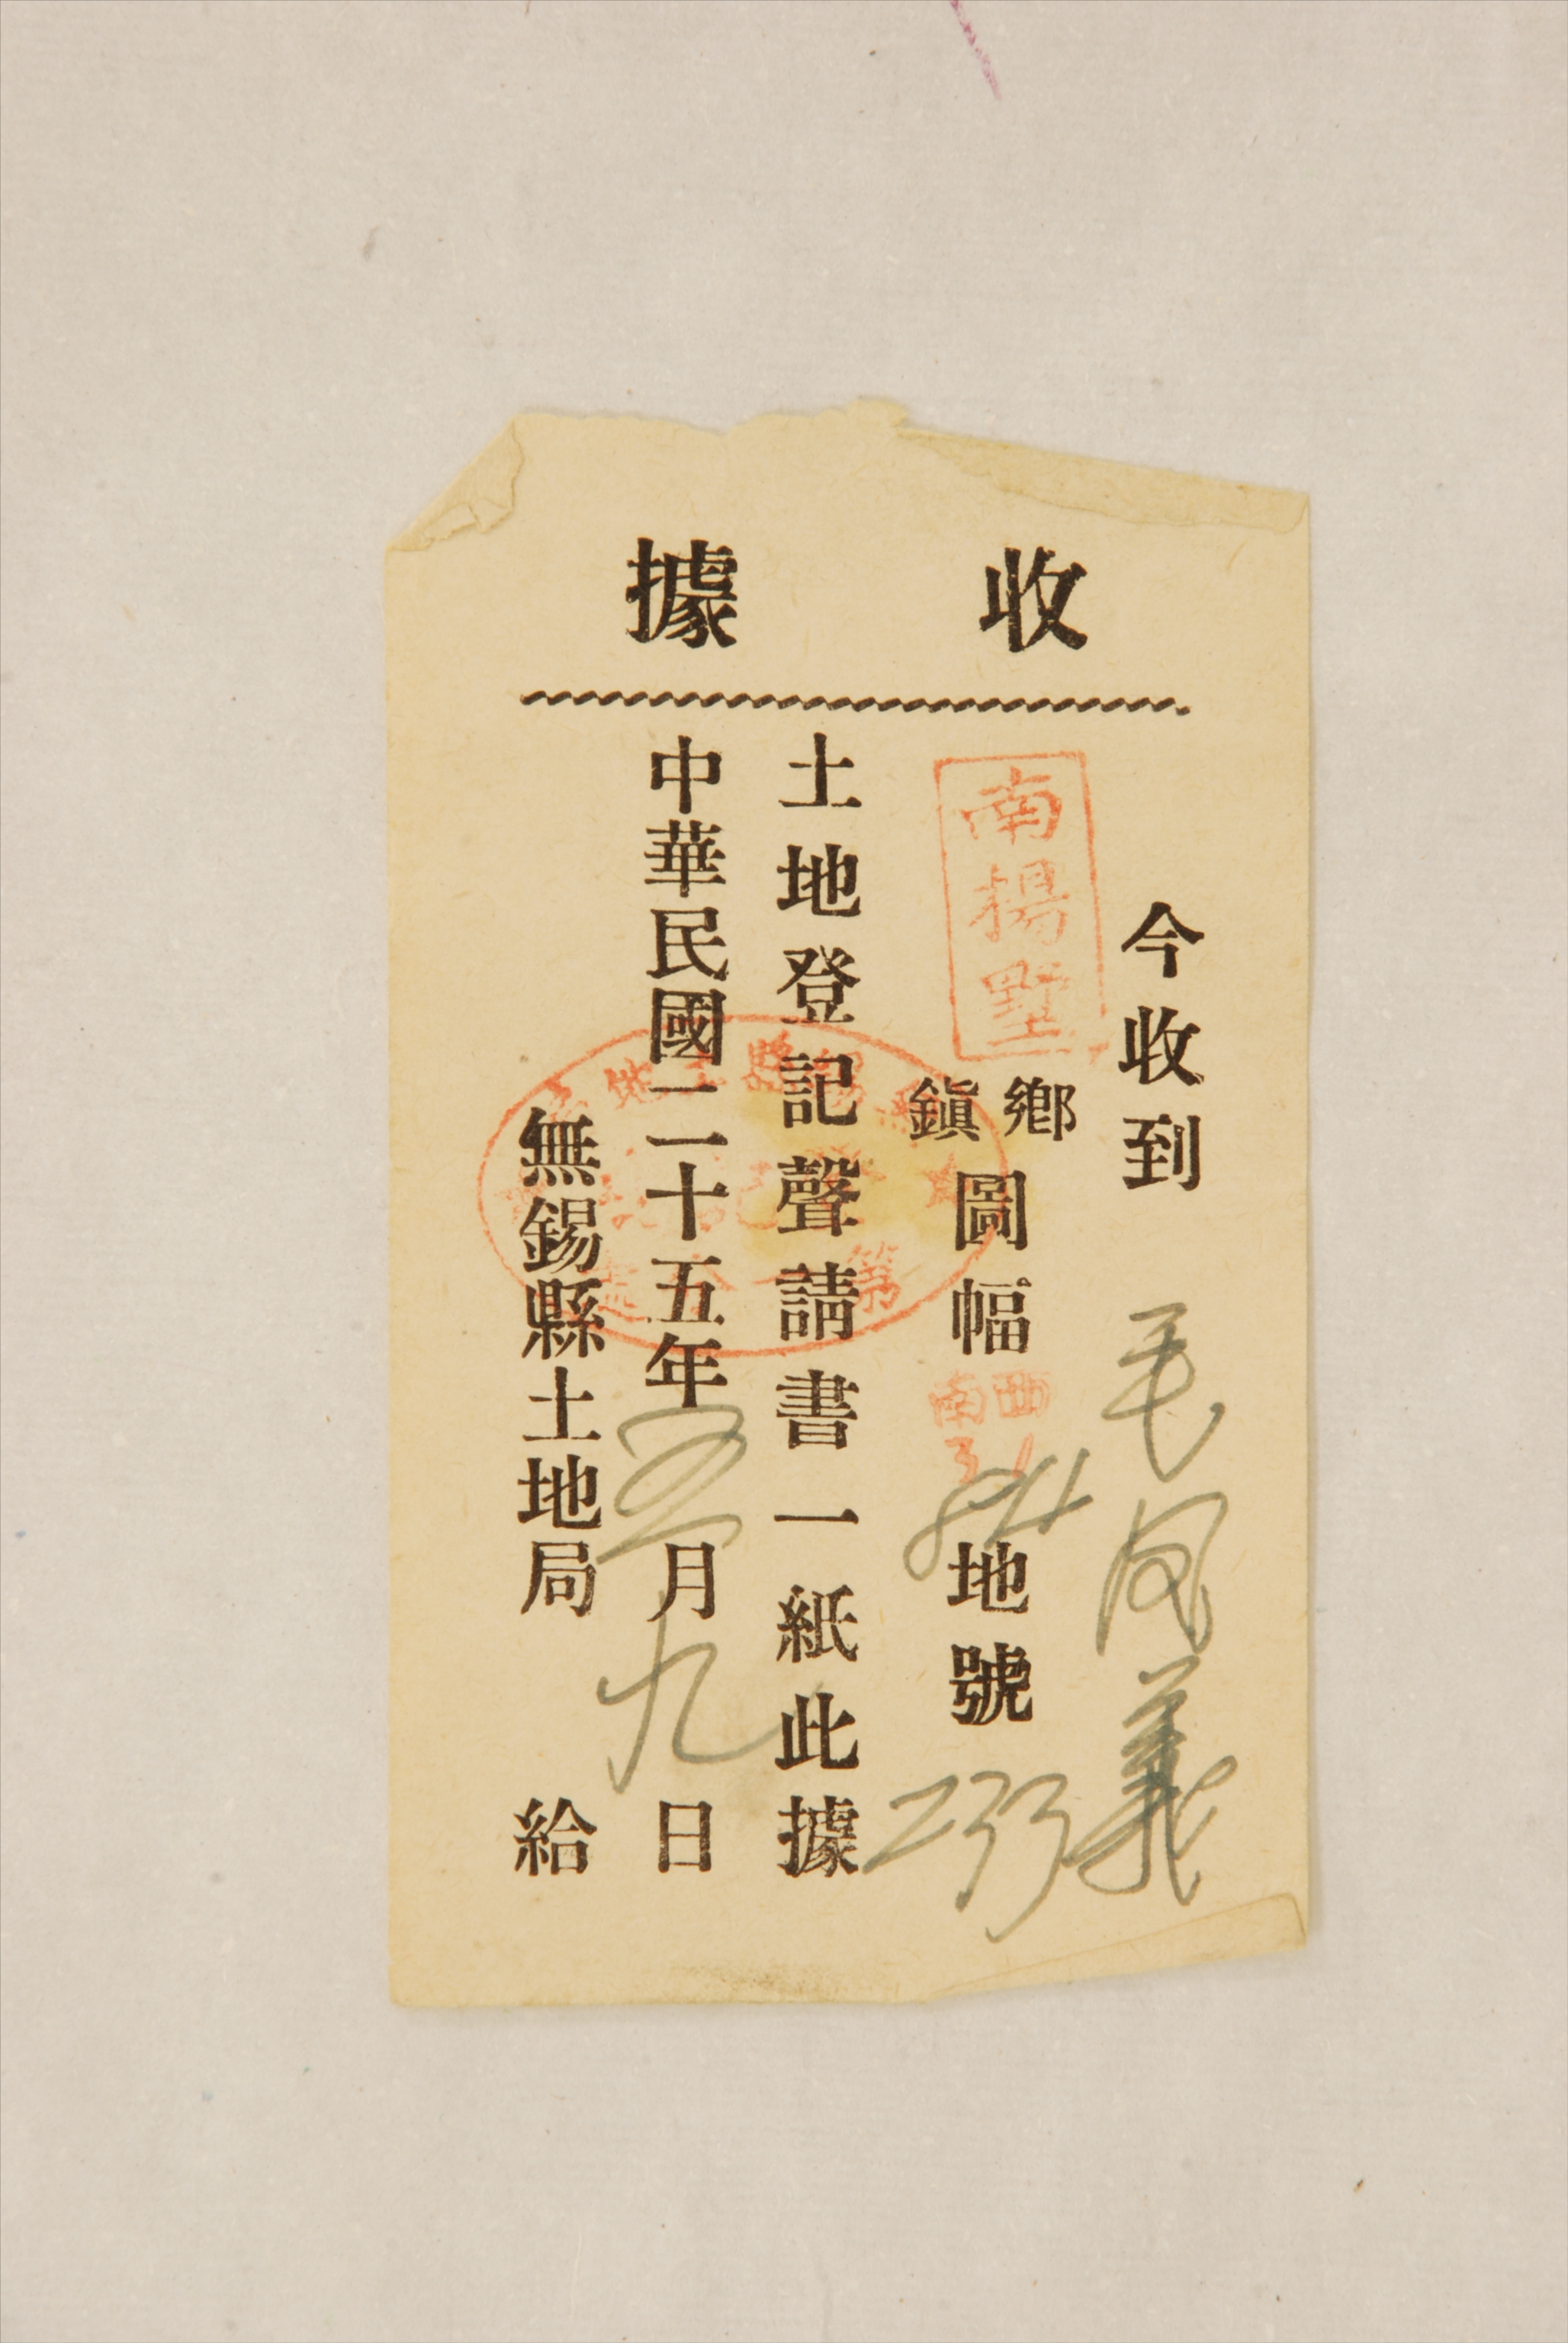 收據
今收到 毛
義
南楊墅
鄉鎮圖幅
西
南
地號 233
土地登記聲請書一紙此據
中華民國二十五年五月九日
無錫縣土地局 給